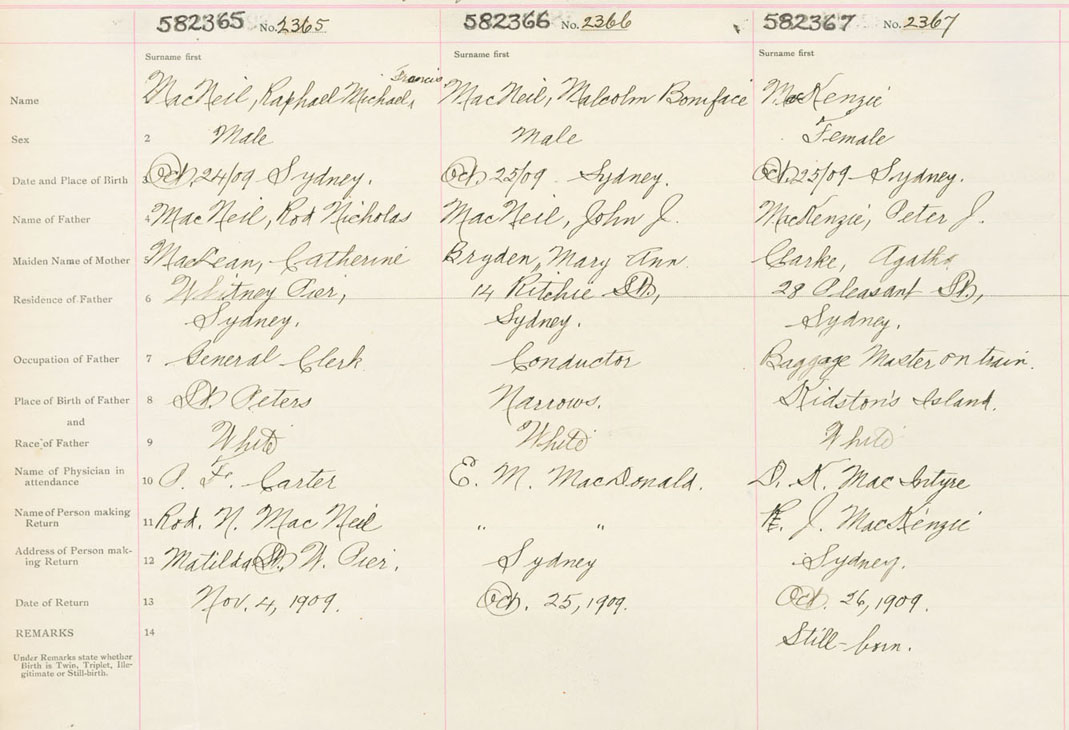 582365 No. 2365 582366 No. 2366 582367 No. 2367
Surname first Surname first Surname first
Francis
Name MacNeil, Raphael Michael, MacNeil, Malcolm Boniface MacKenzie
Sex 2 Male Male Female
Date and Place of Birth 3 Oct. 24/09 Sydney. Oct. 25/09 Sydney. Oct. 25/09 Sydney.
Name of Father 4 MacNeil, Rod Nicholas MacNeil, John J. MacKenzie, Peter J.
Maiden Name of Mother 5 MacLean, Catherine Bryden, Mary Ann Clarke, Agatha
Residence of Father 6 Whitney Pier, 14 Ritchie St, 28 Pleasant St,
Sydney. Sydney. Sydney.
Occupation of Father 7 General Clerk Conductor Baggage Master on train.
Place of Birth of Father 8 St. Peters Narrows. Kidston's Island.
and
Race of Father 9 White White White
Name of Physician in
attendance 10 P. F. Carter E. M. MacDonald. D. K. MacIntyre
Name of Person making
Return 11 Rod. N. MacNeil " " P. J. MacKenzie
Address of Person mak-
ing Return 12 Matilda St. W. Pier. Sydney Sydney.
Date of Return 13 Nov. 4, 1909. Oct. 25, 1909. Oct. 26, 1909.
REMARKS 14 Still-born.
Under Remarks state whether
Birth is Twin, Triplet, Ille-
gitimate or Still-birth.